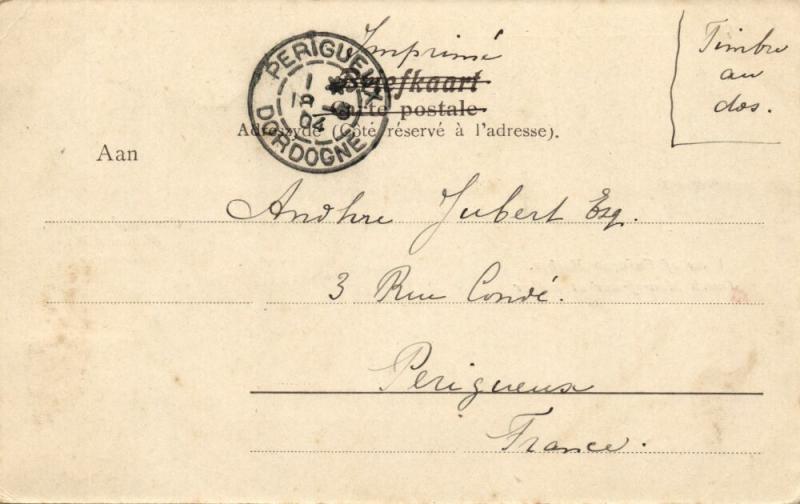 Imprimé
Timbre
au
dos.
PERIGUEUX
1
04
DORDOGNE
Briefkaart
Carte postale
Adreszyde (Côté réservé à l'adresse).
Aan
Andhre Jubert Esq.
3 Rue Condé.
Perigueux
France.